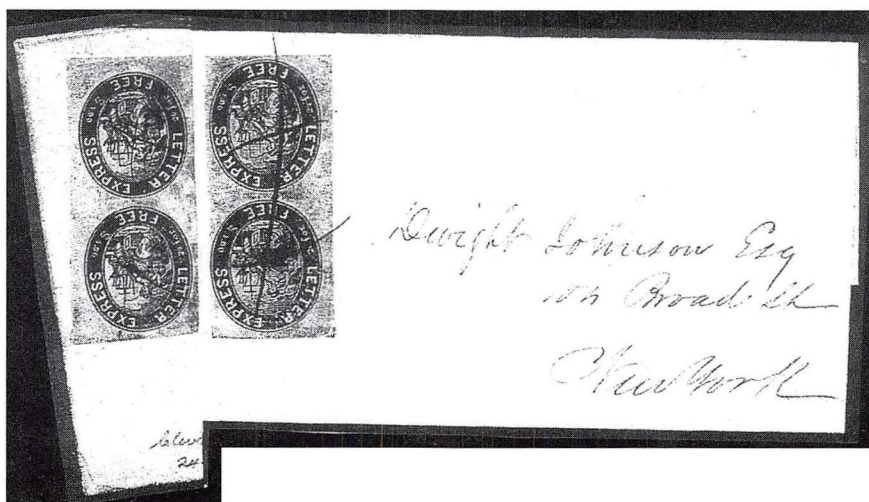 LETTER EXPRESS
FREE
LETTER EXPRESS
FREE
LETTER EXPRESS
FREE
LETTER EXPRESS
FREE
Dwight Johnson Esq
Broad St
New York
24